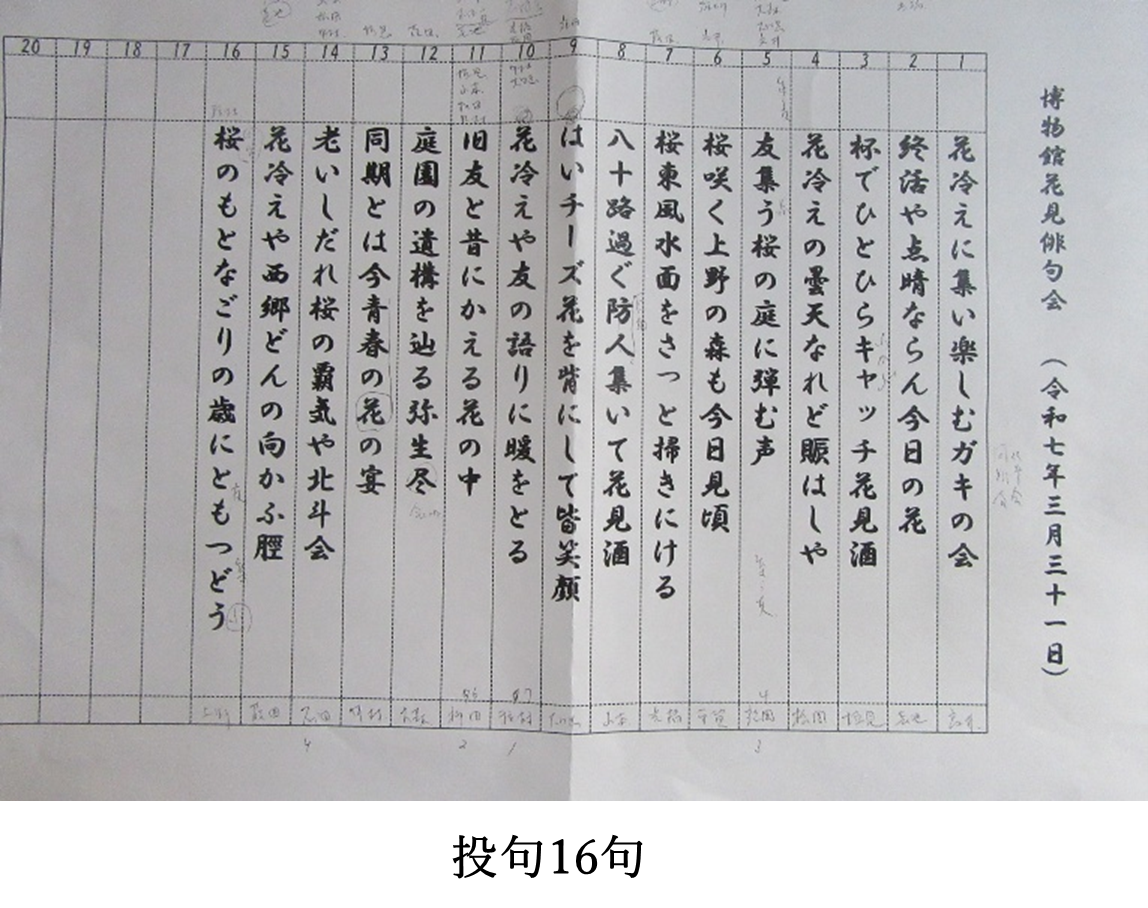 博物館花見俳句会　（令和七年三月三十一日）
1 花冷えに集い楽しむガキの会
2 終活や点晴ならん今日の花
3 杯でひとひらキャッチ花見酒
4 花冷えの曇天なれど賑はしや
5 友集う桜の庭に弾む声
6 桜咲く上野の森も今日見頃
7 桜東風水面をさっと掃きにける
8 八十路過ぐ防人集いて花見酒
9 はいチーズ花を背にして皆笑顔
10 花冷えや友の語りに暖をとる
11 旧友と昔にかえる花の中
12 庭園の遺構を辿る弥生尽
13 同期とは今青春の花の宴
14 老いしだれ桜の覇気や北斗会
15 花冷えや西郷どんの向かふ脛
16 桜のもとなごりの歳にともつどう
17
18
19
20
投句16句